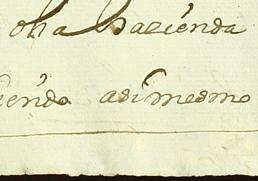 dha hazienda
iendo asimesmo